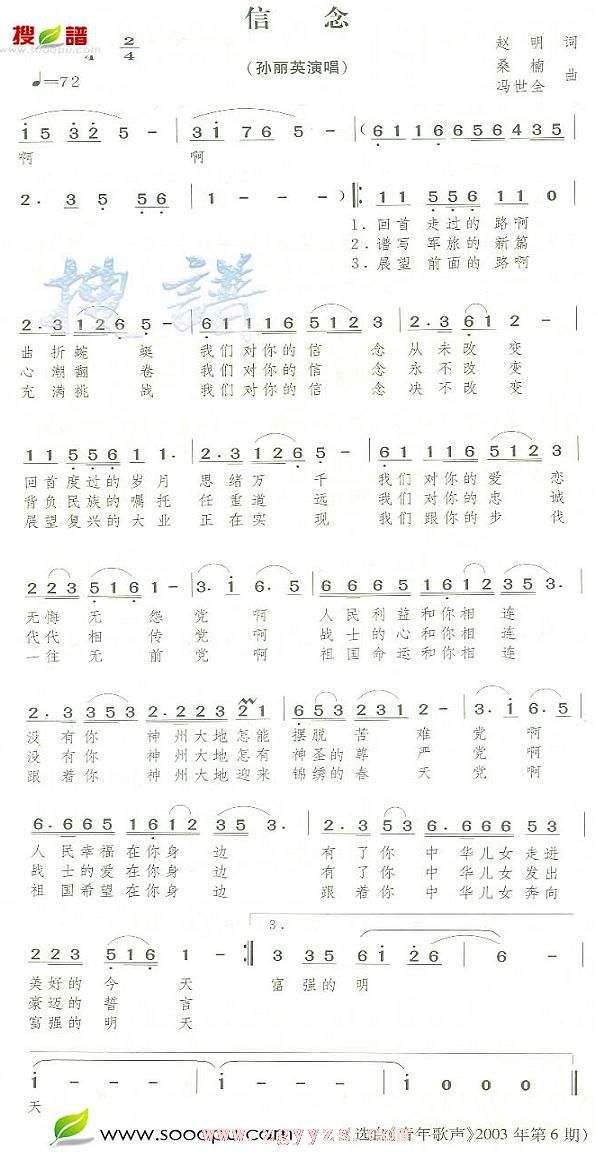 搜谱
www.sooopu.com
信 念
4 2/4
♩=72
(孙丽英演唱)
赵 明 词
桑 楠
冯世全 曲
1 5 3 2 5 - | 3 1 7 6 5 - | (6 1 1 6 6 5 6 4 3 5 |
啊 啊
2. 3 5 5 6 | 1 - - - ) ‖: 1 1 5 5 6 1 1 0 |
1.回首 走过的 路啊
2.谱写 军旅的 新篇
3.展望 前面的 路啊
搜谱
2. 3 1 2 6 5 - | 6 1 1 1 6 5 1 2 3 | 2. 3 6 1 2 - |
曲 折 蜿 蜒 我们对你的信 念 从 未 改 变
心 潮 翻 卷 我们对你的信 念 永 不 改 变
充 满 挑 战 我们对你的信 念 决 不 改 变
1 1 5 5 6 1 1. | 2. 3 1 2 6 5 - | 6 1 1 1 6 5 1 2 3 |
回首度过的岁月 思绪万 千 我们对你的爱 恋
背负民族的嘱托 任重道 远 我们对你的忠 诚
展望复兴的大业 正在实 现 我们跟你的步 伐
2 2 3 5 1 6 1 - | 3. i 6. 5 | 6 6 6 5 1 6 1 2 3 5 3. |
无悔 无 怨 党 啊 人民利益和你相 连
代代 相 传 党 啊 战士的心和你相 连
一往 无 前 党 啊 祖国命运和你相 连
2. 3 3 5 3 | 2. 2 2 3 2 1 | 6 5 3 2 3 1 2 - | 3. i 6. 5 |
没 有 你 神 州大地怎能 摆脱 苦 难 党 啊
没 有 你 神 州大地怎有 神圣的 尊 严 党 啊
跟 着 你 神 州大地迎来 锦绣的 春 天 党 啊
6. 6 6 5 1 6 1 2 | 3 5 3. | 2. 3 5 3 6. 6 6 6 5 3 |
人 民幸福在你身 边 有 了 你 中 华儿女走进
战 士的爱在你身 边 有 了 你 中 华儿女发出
祖 国希望在你身 边 跟 着 你 中 华儿女奔向
3.
2 2 3 5 1 6 | 1 - :‖ 3 3 5 6 i 2 6 | 6 - |
美好的 今 天 富 强的 明
豪迈的 誓 言
富强的 明 天
i - - - | i - - - | i 0 0 0 ‖
天
www.sooopu.com
(选自《青年歌声》2003 年第 6 期)